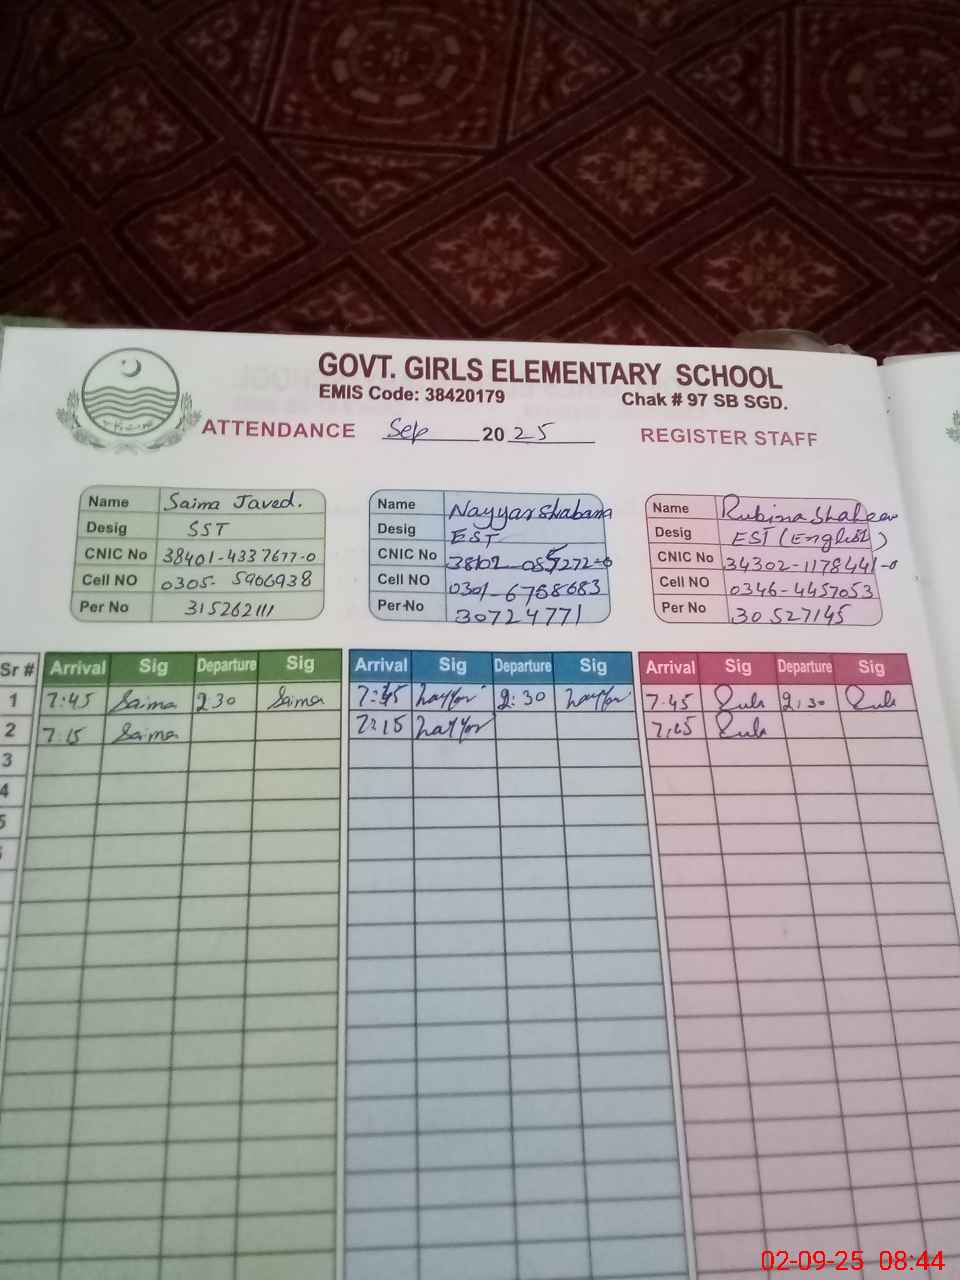 GOVT. GIRLS ELEMENTARY SCHOOL
EMIS Code: 38420179 Chak # 97 SB SGD.
ATTENDANCE Sep 2025 REGISTER STAFF
Name Saima Javed.
Desig SST
CNIC No 38401-4337677-0
Cell NO 0305- 5906938
Per No 315262111
Name Nayyar Shabana
Desig EST
CNIC No
Cell NO 0301-6768683
Per No 30724771
Name Rubina Shaheen
Desig EST (English)
CNIC No 34302-1178441-0
Cell NO 0346-4457053
Per No 30527145
Sr # Arrival Sig Departure Sig Arrival Sig Departure Sig Arrival Sig Departure Sig
1 7:45 Saima 2 30 Saima 7:45 2:30 7.45 Rub 2:30 Rub
2 7:15 Saima 7:15 7:15 Rub
3
4
5
02-09-25 08:44